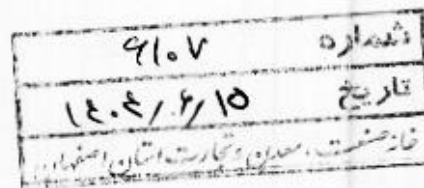 شماره ۶۱۰۷
تاریخ ۱۴۰۴/۶/۱۵
خانه صنعت، معدن و تجارت استان اصفهان